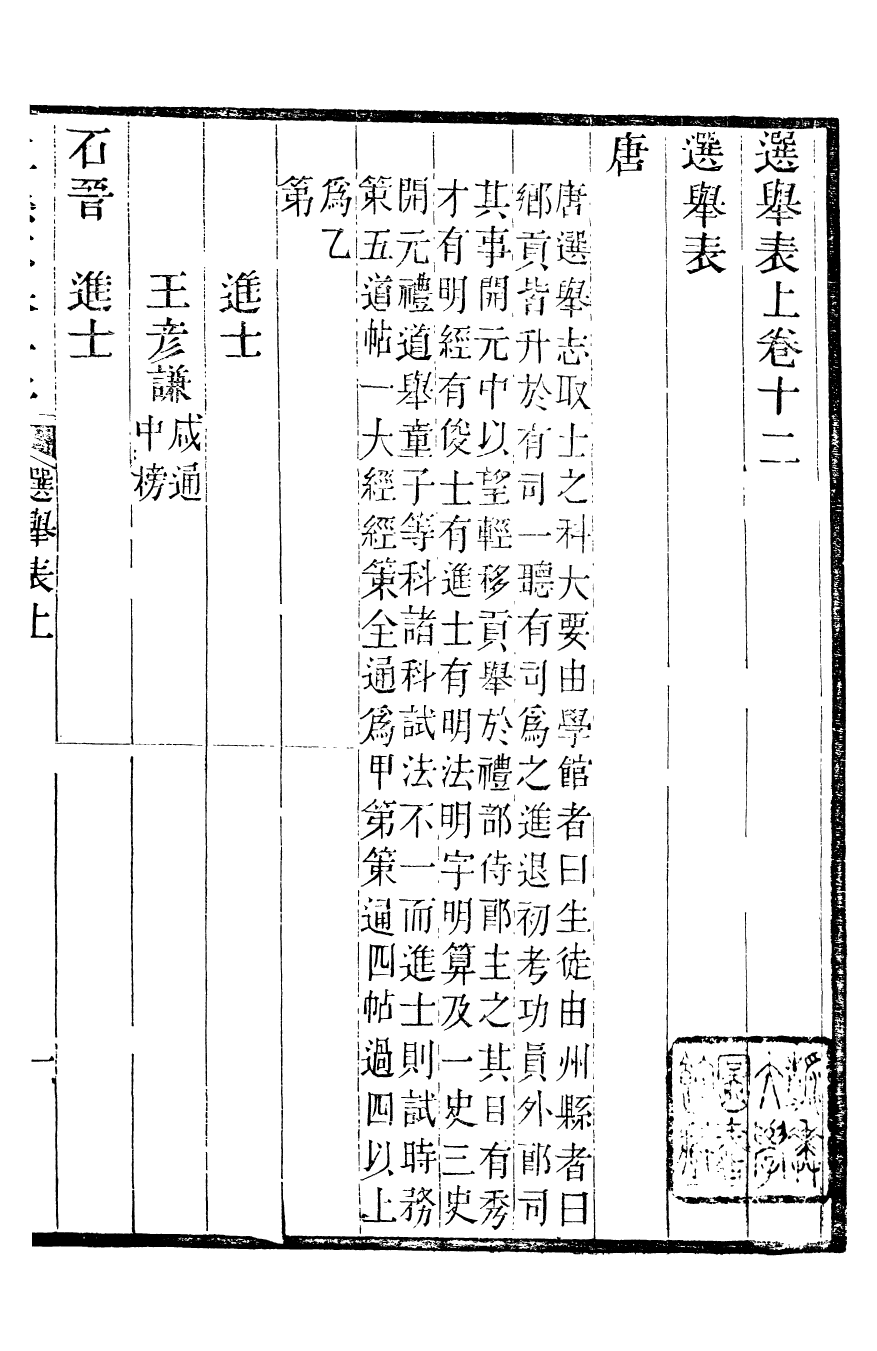 選舉表上卷十二
選舉表
唐
唐選舉志取士之科大要由學館者曰生徒由州縣者曰
鄉貢皆升於有司一聽有司爲之進退初考功員外郎司
其事開元中以望輕移貢舉於禮部侍郎主之其目有秀
才有明經有俊士有進士有明法明字明算及一史三史
開元禮道舉童子等科諸科試法不一而進士則試時務
策五道帖一大經經策全通爲甲第策通四帖過四以上
爲乙
第
進士
王彥謙咸通
中榜
石晉　進士
選舉表上
一